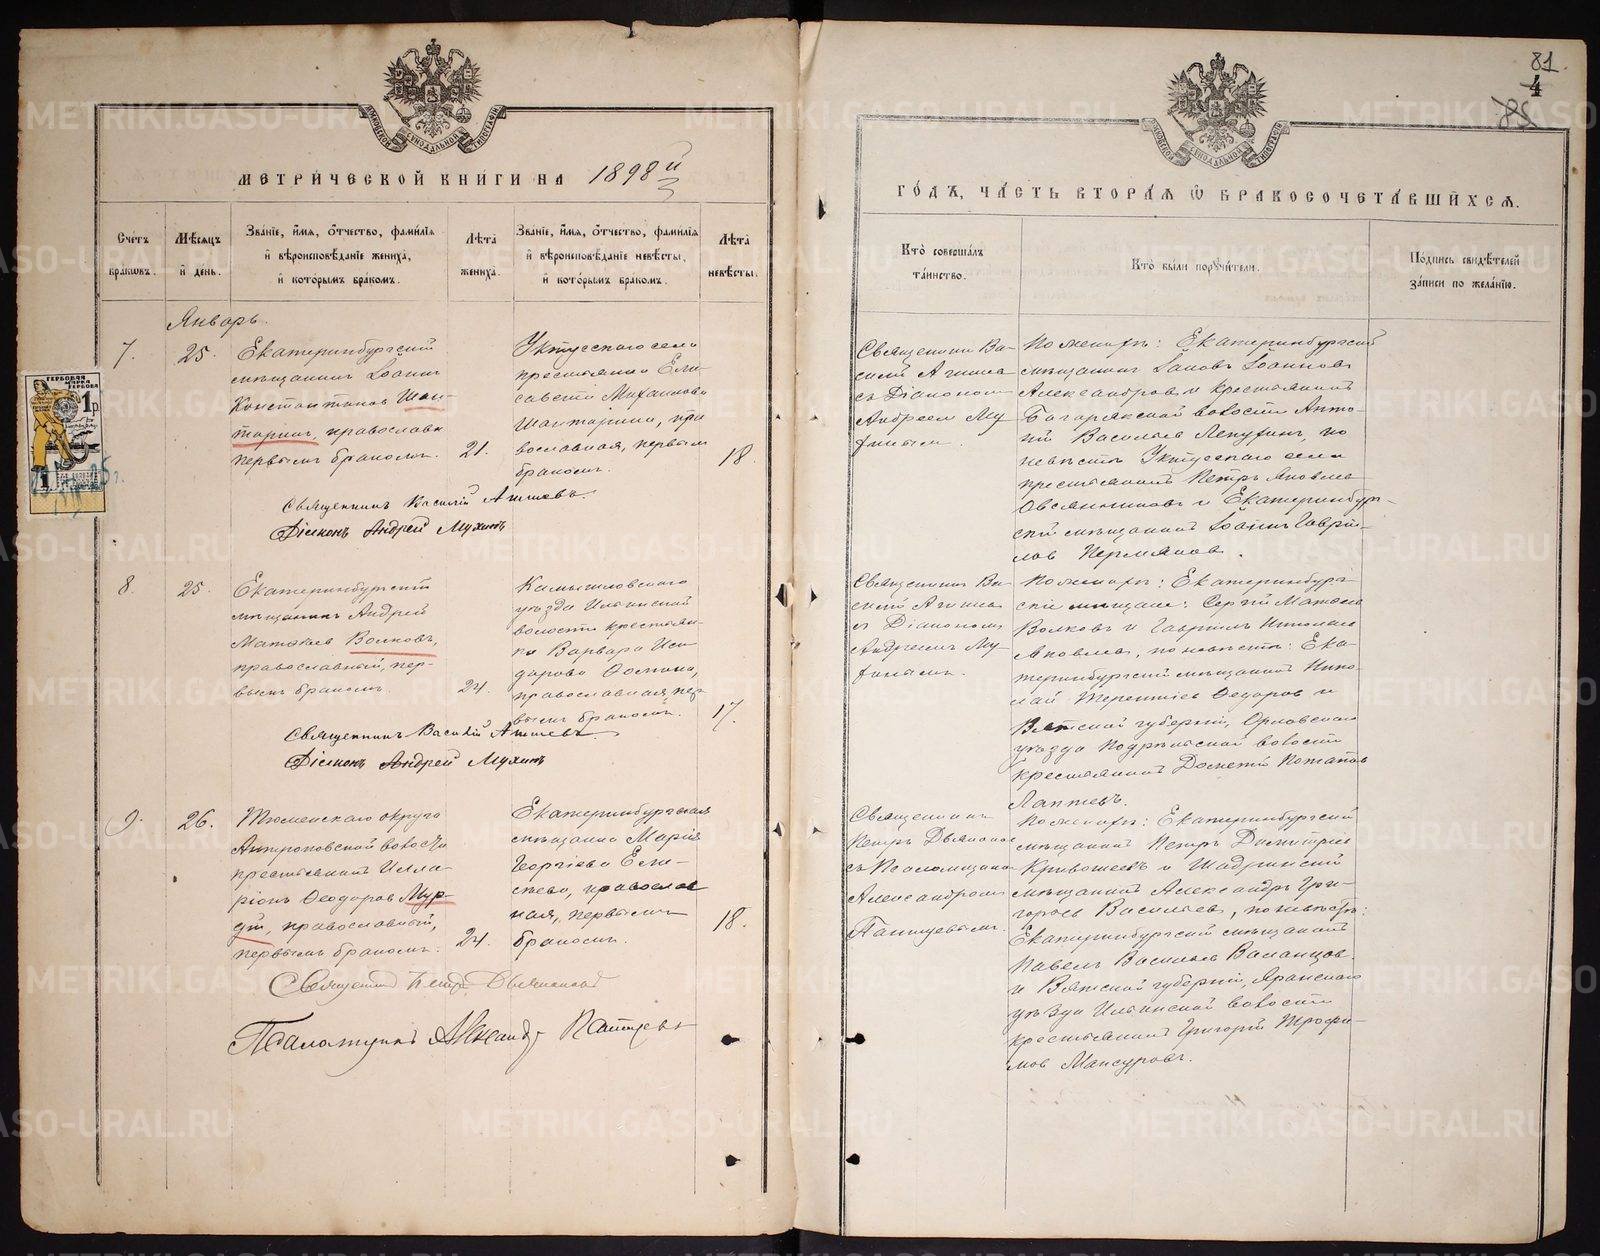 МЕТРИЧЕСКОЙ КНИГИ НА 1898й
Счетъ браковъ.
Мѣсяцъ и день.
Званіе, имя, отчество, фамилія и вѣроисповѣданіе жениха, и которымъ бракомъ.
Лѣта жениха.
Званіе, имя, отчество, фамилія и вѣроисповѣданіе невѣсты, и которымъ бракомъ.
Лѣта невѣсты.
Январь.
7.
25.
Екатеринбургскій
мѣщанинъ Іоаннъ
Константиновъ Шан-
таринъ, православн
первымъ бракомъ.
21.
Уктусскаго села
крестьянка Ели-
савета Михаилова
Шантарина, пра
вославная, первым
бракомъ.
18
Священникъ Василій Ашиевъ.
Діаконъ Андрей Мухинъ
8.
25.
Екатеринбургскій
мѣщанинъ Андрей
Матѳіевъ Волковъ,
православный, пер-
вымъ бракомъ.
24.
Камышловскаго
уѣзда Ильинской
волости крестьян-
ка Варвара Иси-
дорова Ѳомина,
православная, пер
вымъ бракомъ.
17.
Священникъ Василій Ашиевъ.
Діаконъ Андрей Мухинъ
9.
26.
Тюменскаго округа
Антроповской волости
крестьянинъ Илла-
ріонъ Ѳеодоров
православный,
первымъ бракомъ.
24.
Екатеринбургская
мѣщанка Марія
Георгіева Ели-
сѣева, православ
ная, первымъ
бракомъ.
18.
Священникъ Петръ Дьяконовъ
Псаломщикъ Александр Пантуевъ
81
4
85
ГОДЪ, ЧАСТЬ ВТОРАЯ Ѡ БРАКОСОЧЕТАВШИХСЯ.
Кто совершалъ таинство.
Кто были поручители.
Подпись свидѣтелей записи по желанію.
Священникъ Ва-
силій Ашиев
съ Діакономъ
Андреем Му
хинымъ.
По женихѣ: Екатеринбургскій
мѣщанинъ Іаковъ Іоанновъ
Александровъ и крестьянинъ
Багарякской волости Анто-
ній Васильевъ Лепухинъ, по
невѣстѣ Уктусскаго села
крестьянинъ Петръ Яковлев
Овсянниковъ и Екатеринбург-
скій мѣщанинъ Іоаннъ Гаврии-
ловъ Пермяков.
Священникъ Ва-
силій Ашиев
съ Діаконом
Андреемъ Му-
хинымъ.
По женихѣ: Екатеринбург-
скіе мѣщане: Сергій Матѳіев
Волковъ и Гавріилъ Николаев
Яковлев, по невѣстѣ: Ека-
теринбургскій мѣщанинъ Нико-
лай Терентіев Ѳедоров и
Вятской губерніи, Орловскаго
уѣзда Подрѣльской волости
крестьянинъ Дометій Потапов
Лаптевъ.
Священникъ
Петръ Дьяконов
съ Псаломщиком
Александромъ
Пантуевымъ.
По женихѣ: Екатеринбургскій
мѣщанинъ Петръ Димитріев
Кривошеевъ и Шадринскій
мѣщанинъ Александръ Гри-
горьевъ Васильев, по невѣстѣ:
Екатеринбургскій мѣщанинъ
Павелъ Васильев
и Вятской губерніи, Яранскаго
уѣзда Ильинской волости
крестьянинъ Григорій Трофи-
мовъ Мансуровъ.
ГЕРБОВАЯ МАРКА
1 р
METRIKI.GASO-URAL.RU